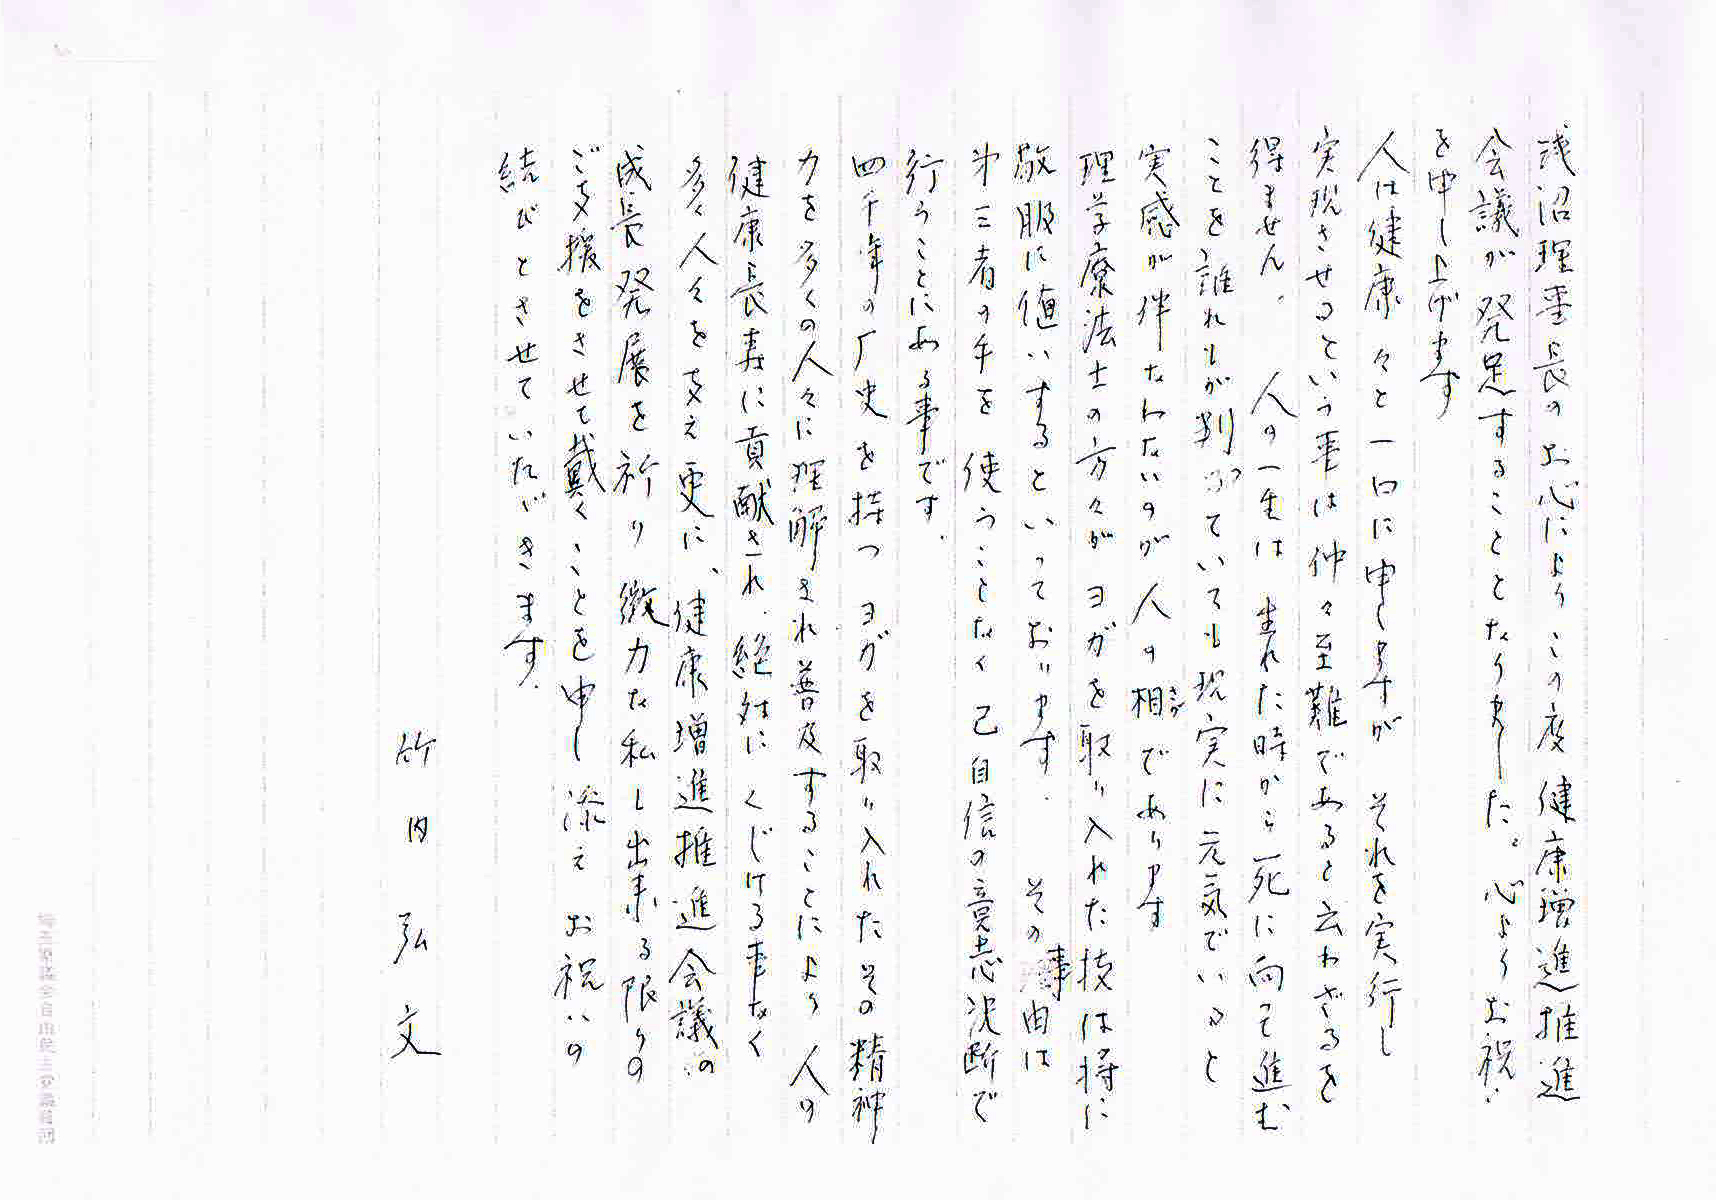 浅沼理事長のお心によりこの度健康増進推進
会議が発足することとなりました。心よりお祝い
を申し上げます
人は健康々と一口に申しますが それを実行し
実現させるという事は仲々至難であると云わざるを
得ません。 人の一生は生れた時から死に向って進む
ことを誰れもが判っていても現実に元気でいると
実感が伴なわないのが人の相さがであります
理学療法士の方々がヨガを取り入れた技は特に
敬服に値いするといっております. その事由は
才三者の手を使うことなく己自信の意志決断で
行うことにある事です.
四千年の厂史を持つ ヨガを取り入れたその精神
力を多くの人々に理解され普及することにより人の
健康長寿に貢献され、絶対にくじける事なく
多く人々を支え更に、健康増進推進会議の
成長発展を祈り微力な私し出来る限りの
ご支援をさせて戴くことを申し添えお祝いの
結びとさせていただきます.
竹内弘文
埼玉県議会自由民主党議員団